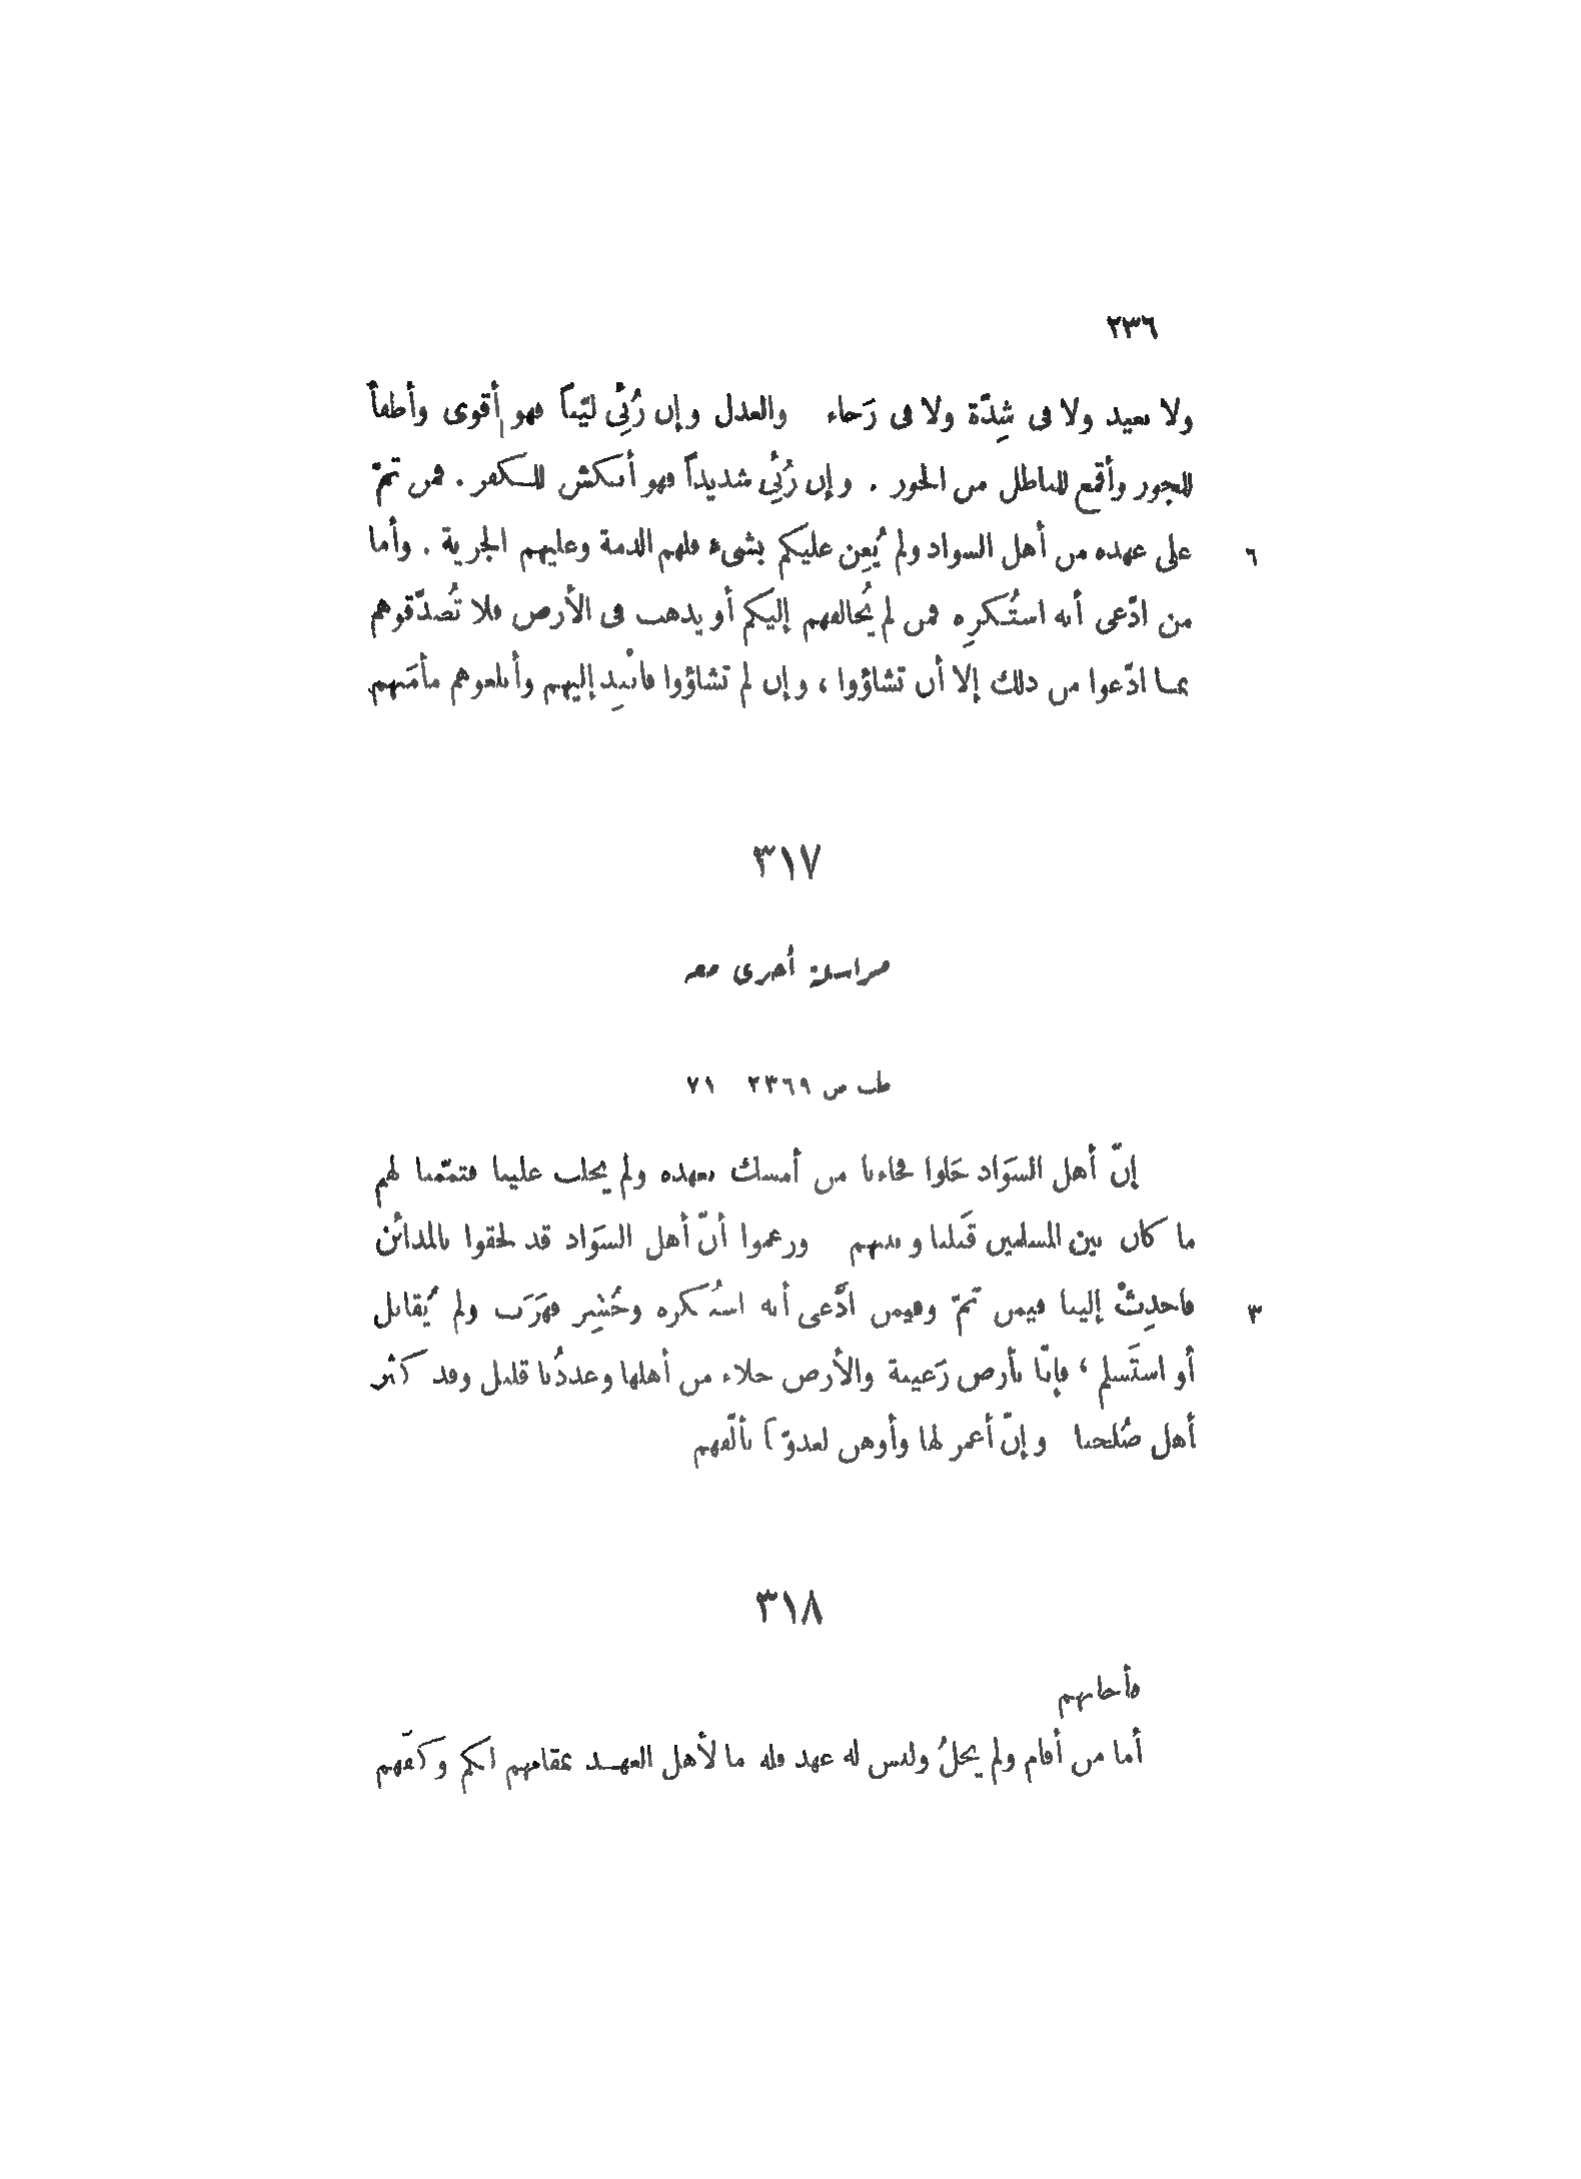 ٢٣٦
ولا بعيد ولا فى شِدّة ولا فى رَخاء والعدل وإن رُئِىَ ليّناً فهو أقوى وأطفأ
للجور وأقمع للباطل من الجور . وإن رُئِىَ شديداً فهو أنكش للكفر . فمن تمّ
على عهده من أهل السواد ولم يُعِن عليكم بشىء فلهم الذمة وعليهم الجزية . وأما ٦
من ادّعى أنه استُكرِه فمن لم يُخالفهم إليكم أو يذهب فى الأرض فلا تُصدّقوهم
بما ادّعوا من ذلك إلا أن تشاؤوا ، وإن لم تشاؤوا فانْبِذ إليهم وأبلغوهم مأمَنهم
٣١٧
مراسلة أخرى معه
طب ص ٢٣٦٩ ٧١
إنّ أهل السَوَاد خَلوا فجاءنا من أمسك بعهده ولم يجلب علينا فتمّمنا لهم
ما كان بين المسلمين قَبلنا وبينهم وزعموا أنّ أهل السَوَاد قد لحقوا بالمدائن
فاحدِثْ إلينا فيمن تمّ وفيمن ادَّعى أنه استُكره وحُشِر فهَرَب ولم يُقاتل ٣
أو استَسلم ، فإنّا بأرض رَغيبة والأرض خلاء من أهلها وعددُنا قليل وقد كثر
أهل صُلحنا وإنّ أعمر لها وأوهن لعدوّنا تألّفهم
٣١٨
فأجابهم
أما من أقام ولم يجلُ وليس له عهد فله ما لأهل العهد بمقامهم لكم وكفّهم